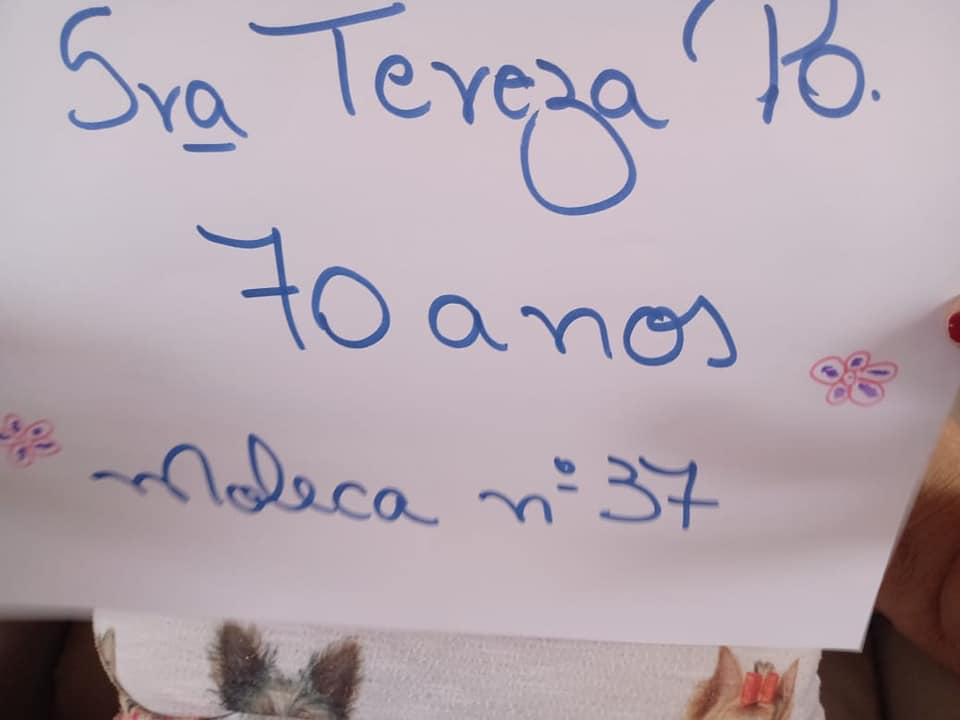 Sra Tereza B.
70 anos
Moleca nº 37